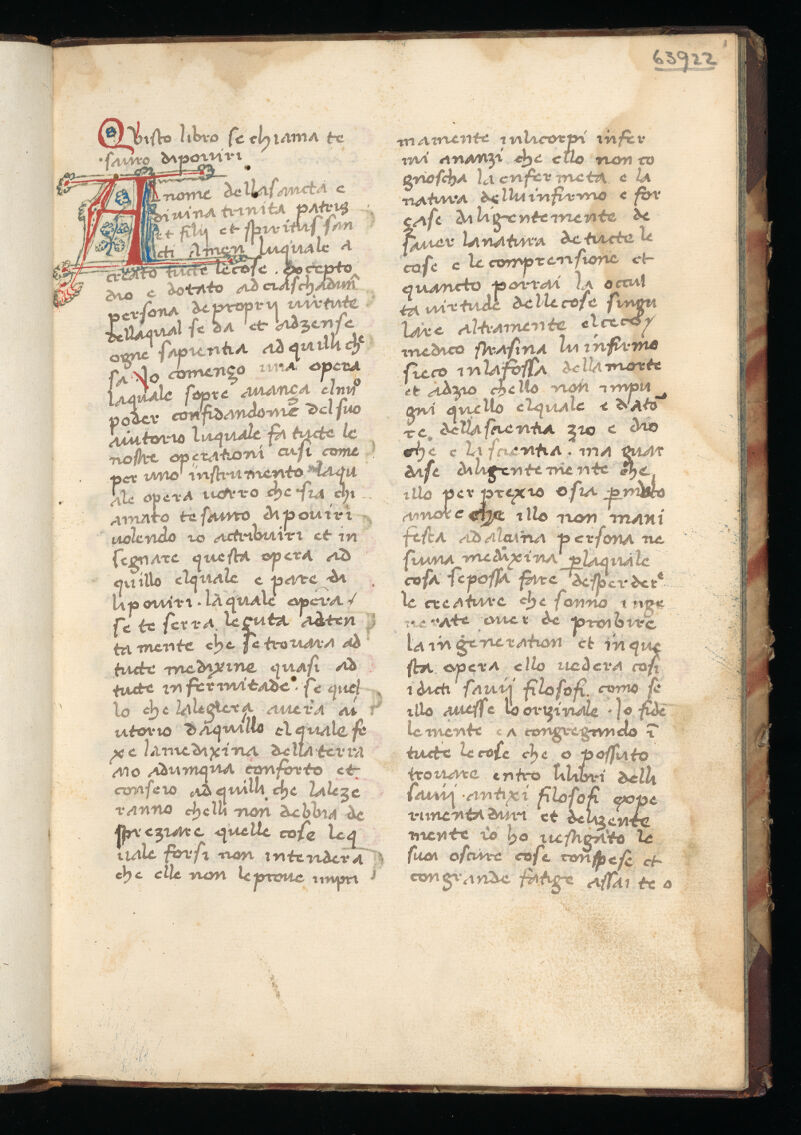 63922
Quisto libro se chiama te
sauro dipouiri
A nome dellasancta e
diuina trinita patris
et filii et spiritus san
cti Amen luquale a
creato tucte lecose. Excepto
dio e dotato adciaschaduna
persona depropry uirtute
dellaqual se da et adzense
ogne sapientia ad quilli che
sa. Io començo una opera
laquale sopre auança elmio
poder confidandome delsuo
aiutorio luquale fa tucte le
nostre operationi cusi come
per uno instrumento laqu
ale opera uorro che sia chi
amato tesauro dipouiri
uolendo io actribuiri et in
segnare questa opera ad
quillo elquale e pare di
lipouiri. laquale opera
se te serra leguta adten
tamente che setrouara ad
tucte medixine quasi ad
tucte infermitade. se quel
lo che lalegera auera ai
utorio daquillo elquale fe
xe lamedixina dellaterra
Mo adumqua conforto et
conseio ad quilli che laleze
ranno chelli non debbia de
spreziare quelle cose leq
uale forsi non intendera
che elle non leproue impri
mamente inlicorpi infer
mi ananzi che ello non co
gnoscha laenfermeta e la
natura delluinfirmo e for
çase diligentemente de
sauer lanatura detucte le
cose e lecomprensione et
quancto porrai la occul
ta uirtude dellecose singu
lare altramente elceco
medico strasina luinfirmo
sieco inlafossa dellamorte
et adzio chello non impu
gni quello elquale e dato
re dellascientia zio e dio
che e lascientia. ma guar
dise diligentemente che
illo per prexio osia per
amore che illo non mani
festa adalcuna persona ne
siuna medixina perlaquale
cosa sepossa fare desperdere
le creature che sonno inge
nerate ouer de proibire
laingeneration et inque
sta opera ello uedera cosi
idicti sauij filosofi como se
illo auesse loorizinale. Io fide
lemente congregando in
tucte lecose che o possuto
trouare entro lilibri delli
sauij antixi filosofi expe
rimentaduri et delizente
mente io ho uestigato le
suoi oscure cose conspese et
congrande fatige assai te o